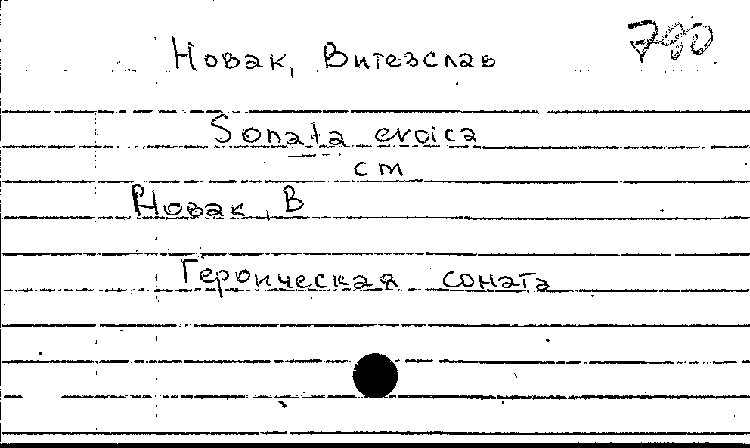 780
Новак, Витезслав
Sonata eroica
см
Новак, В
Героическая соната